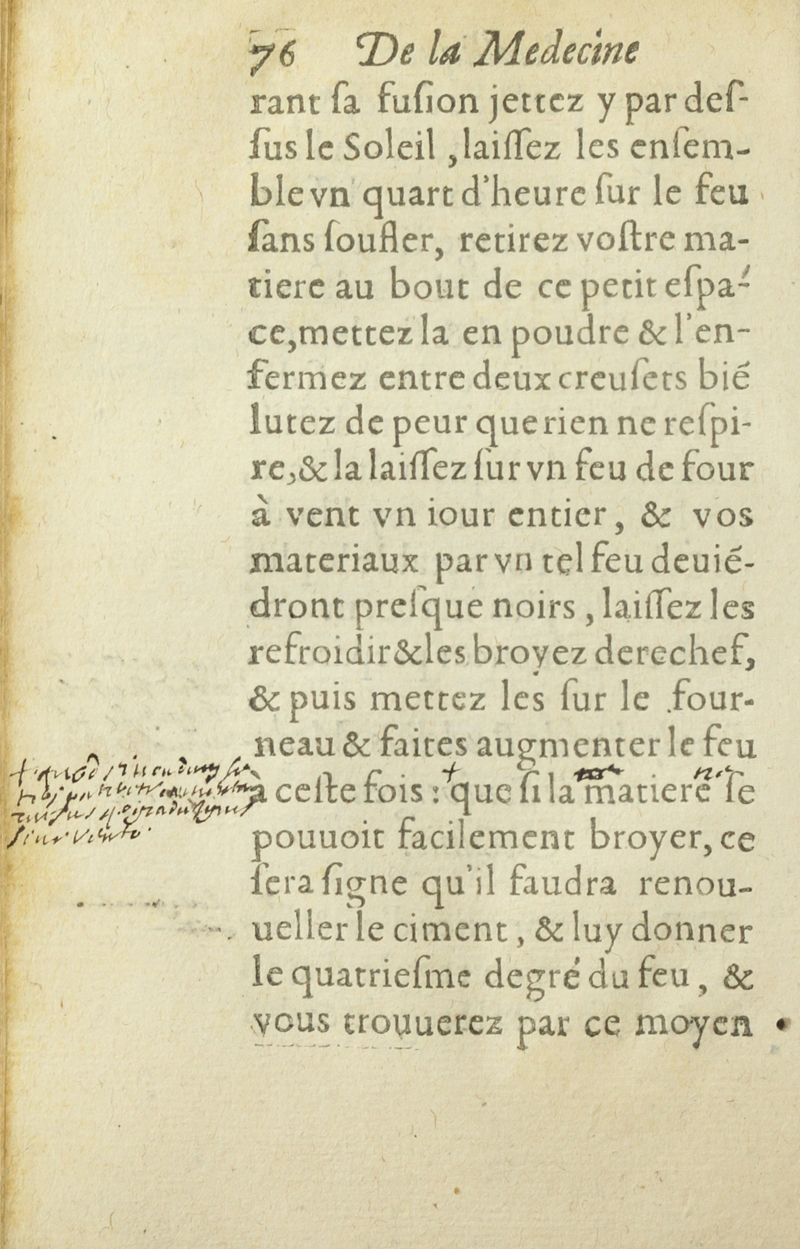 76 De la Medecine
rant ſa fuſion jettez y par deſ-
ſus le Soleil , laiſſez les enſem-
ble vn quart d'heure ſur le feu
ſans ſoufler, retirez voſtre ma-
tiere au bout de ce petit eſpa-
ce, mettez la en poudre & l'en-
fermez entre deux creuſets bié
lutez de peur que rien ne reſpi-
re, & la laiſſez ſur vn feu de four
à vent vn iour entier, & vos
materiaux par vn tel feu deuié-
dront preſque noirs , laiſſez les
refroidir & les broyez derechef,
& puis mettez les ſur le four-
neau & faites augmenter le feu
a ceſte fois : + que ſi la matiere ſe
pouuoit facilement broyer, ce
ſera ſigne qu'il faudra renou-
ueller le ciment , & luy donner
le quatrieſme degré du feu , &
vous trouuerez par ce moyen